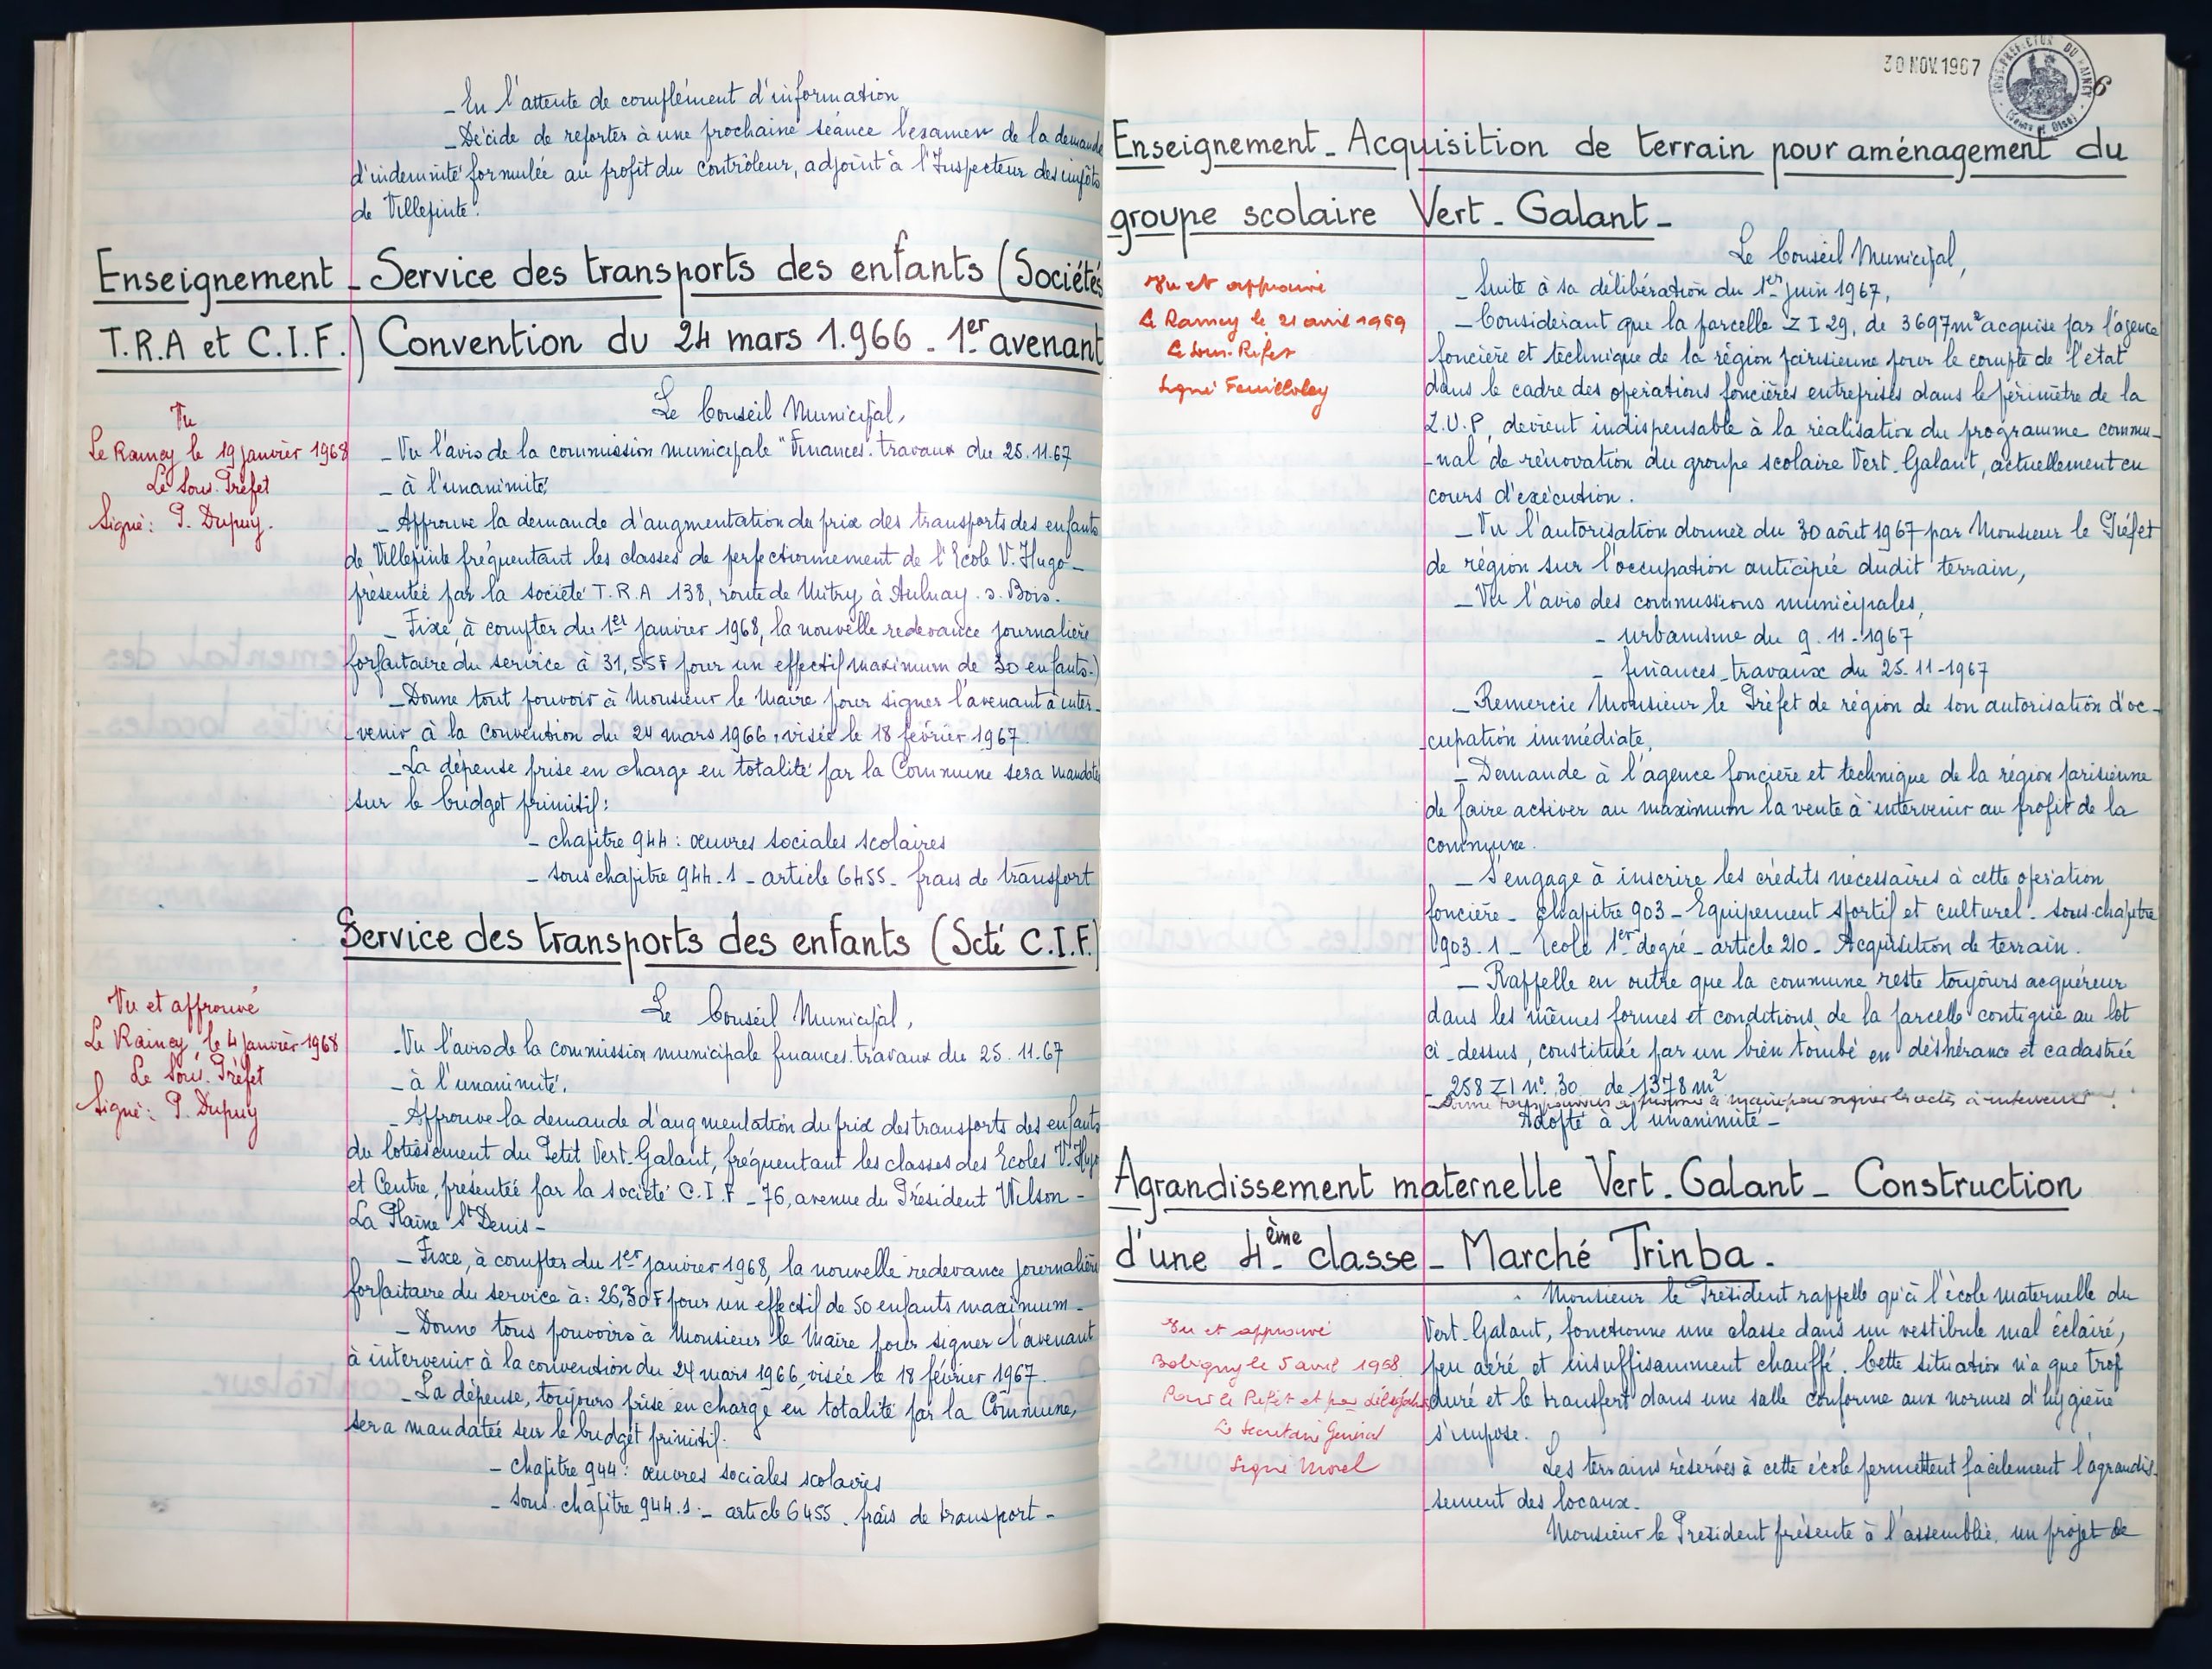 _ En l'attente de complément d'information
_ Décide de reporter à une prochaine séance l'examen de la demande
d'indemnité formulée au profit du Contrôleur, adjoint à l'Inspecteur des impôts
de Villepinte.
Enseignement _ Service des transports des enfants (Sociétés
T.R.A et C.I.F.) Convention du 24 mars 1.966 _ 1er avenant
Le Conseil Municipal,
Vu
Le Raincy le 19 janvier 1968
Le Sous. Préfet
Signé : P. Dupuy.
_ Vu l'avis de la commission municipale "Finances. travaux du 25.11.67
_ à l'unanimité,
_ Approuve la demande d'augmentation du prix des transports des enfants
de Villepinte fréquentant les classes de perfectionnement de l'Ecole V. Hugo _
présentée par la société T.R.A 138, route de Mitry à Aulnay. s. Bois.
_ Fixe, à compter du 1er janvier 1968, la nouvelle redevance journalière
forfaitaire du service à 31,55F pour un effectif maximum de 30 enfants.)
_ Donne tout pouvoir à Monsieur le Maire pour signer l'avenant à inter_
_venir à la convention du 24 mars 1966, visée le 18 février 1967.
_ La dépense prise en charge en totalité par la Commune sera mandatée
sur le budget primitif :
_ chapitre 944 : œuvres sociales scolaires
_ sous chapitre 944. 1 _ article 6455 _ frais de transport
Service des transports des enfants (Scté C.I.F.)
Le Conseil Municipal,
Vu et approuvé
Le Raincy, le 4 janvier 1968
Le Sous. Préfet
Signé : P. Dupuy
_ Vu l'avis de la commission municipale finances. travaux du 25. 11.67
_ à l'unanimité,
_ Approuve la demande d'augmentation du prix des transports des enfants
du lotissement du Petit Vert-Galant, fréquentant les classes des Ecoles V. Hugo
et Centre, présentée par la société C.I.F _ 76, avenue du Président Wilson _
La Plaine St Denis _
_ Fixe, à compter du 1er janvier 1968, la nouvelle redevance journalière
forfaitaire du service à : 26,30F pour un effectif de 50 enfants maximum _
_ Donne tous pouvoirs à Monsieur le Maire pour signer l'avenant
à intervenir à la convention du 24 mars 1966, visée le 18 février 1967.
_ La dépense, toujours prise en charge en totalité par la Commune,
sera mandatée sur le budget primitif.
_ chapitre 944 : œuvres sociales scolaires
_ sous. chapitre 944.1 _ article 6455 _ frais de transport _
30 NOV. 1967
6
Enseignement _ Acquisition de terrain pour aménagement du
groupe scolaire Vert _ Galant _
Le Conseil Municipal,
Vu et approuvé
Le Raincy le 21 avril 1969
Le Sous-Préfet
Signé
_ Suite à sa délibération du 1er juin 1967,
_ Considérant que la parcelle Z I 29, de 3697m2 acquise par l'agence
foncière et technique de la région parisienne pour le compte de l'état
dans le cadre des opérations foncières entreprises dans le périmètre de la
Z.U.P, devient indispensable à la réalisation du programme commu_
_nal de rénovation du groupe scolaire Vert. Galant, actuellement en
cours d'exécution.
_ Vu l'autorisation donnée du 30 août 1967 par Monsieur le Préfet
de région sur l'occupation anticipée dudit terrain,
_ Vu l'avis des commissions municipales,
_ urbanisme du 9. 11 - 1967
_ finances _ travaux du 25. 11-1967
_ Remercie Monsieur le Préfet de région de son autorisation d'oc_
_cupation immédiate,
_ Demande à l'agence foncière et technique de la région parisienne
de faire activer au maximum la vente à intervenir au profit de la
commune.
_ S'engage à inscrire les crédits nécessaires à cette opération
foncière _ chapitre 903 _ Equipement sportif et culturel _ sous-chapitre
903. 1 _ Ecole 1er degré _ article 210 _ Acquisition de terrain.
_ Rappelle en outre que la commune reste toujours acquéreur
dans les mêmes formes et conditions, de la parcelle contiguë au lot
ci _ dessus, constituée par un bien tombé en déshérance et cadastrée
_ 258 Z I n° 30 de 1378 m2
_ Donne tous pouvoirs à Monsieur le Maire pour signer les actes à intervenir
Adopté à l'unanimité _
Agrandissement maternelle Vert _ Galant _ Construction
d'une 4ème classe _ Marché Trinba _
Vu et approuvé
Bobigny le 5 avril 1968
Pour le Préfet et par délégation
Le Secrétaire Général
Signé Morel
Monsieur le Président rappelle qu'à l'école maternelle du
Vert. Galant, fonctionne une classe dans un vestibule mal éclairé,
peu aéré et insuffisamment chauffé. Cette situation n'a que trop
duré et le transfert dans une salle conforme aux normes d'hygiène
s'impose.
Les terrains réservés à cette école permettent facilement l'agrandis_
_sement des locaux.
Monsieur le Président présente à l'assemblée, un projet de